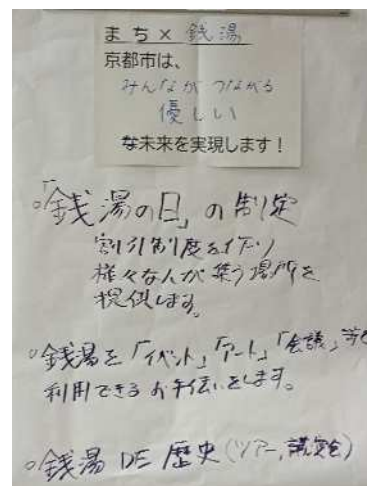 まち×銭湯
京都市は、
みんながつながる
優しい
な未来を実現します！
○「銭湯の日」の制定
割引制度を作り
様々な人が集う場所を
提供します。
○銭湯を「イベント」「アート」「会議」等で
利用できるお手伝いをします。
○銭湯 DE 歴史(ツアー、講演会)